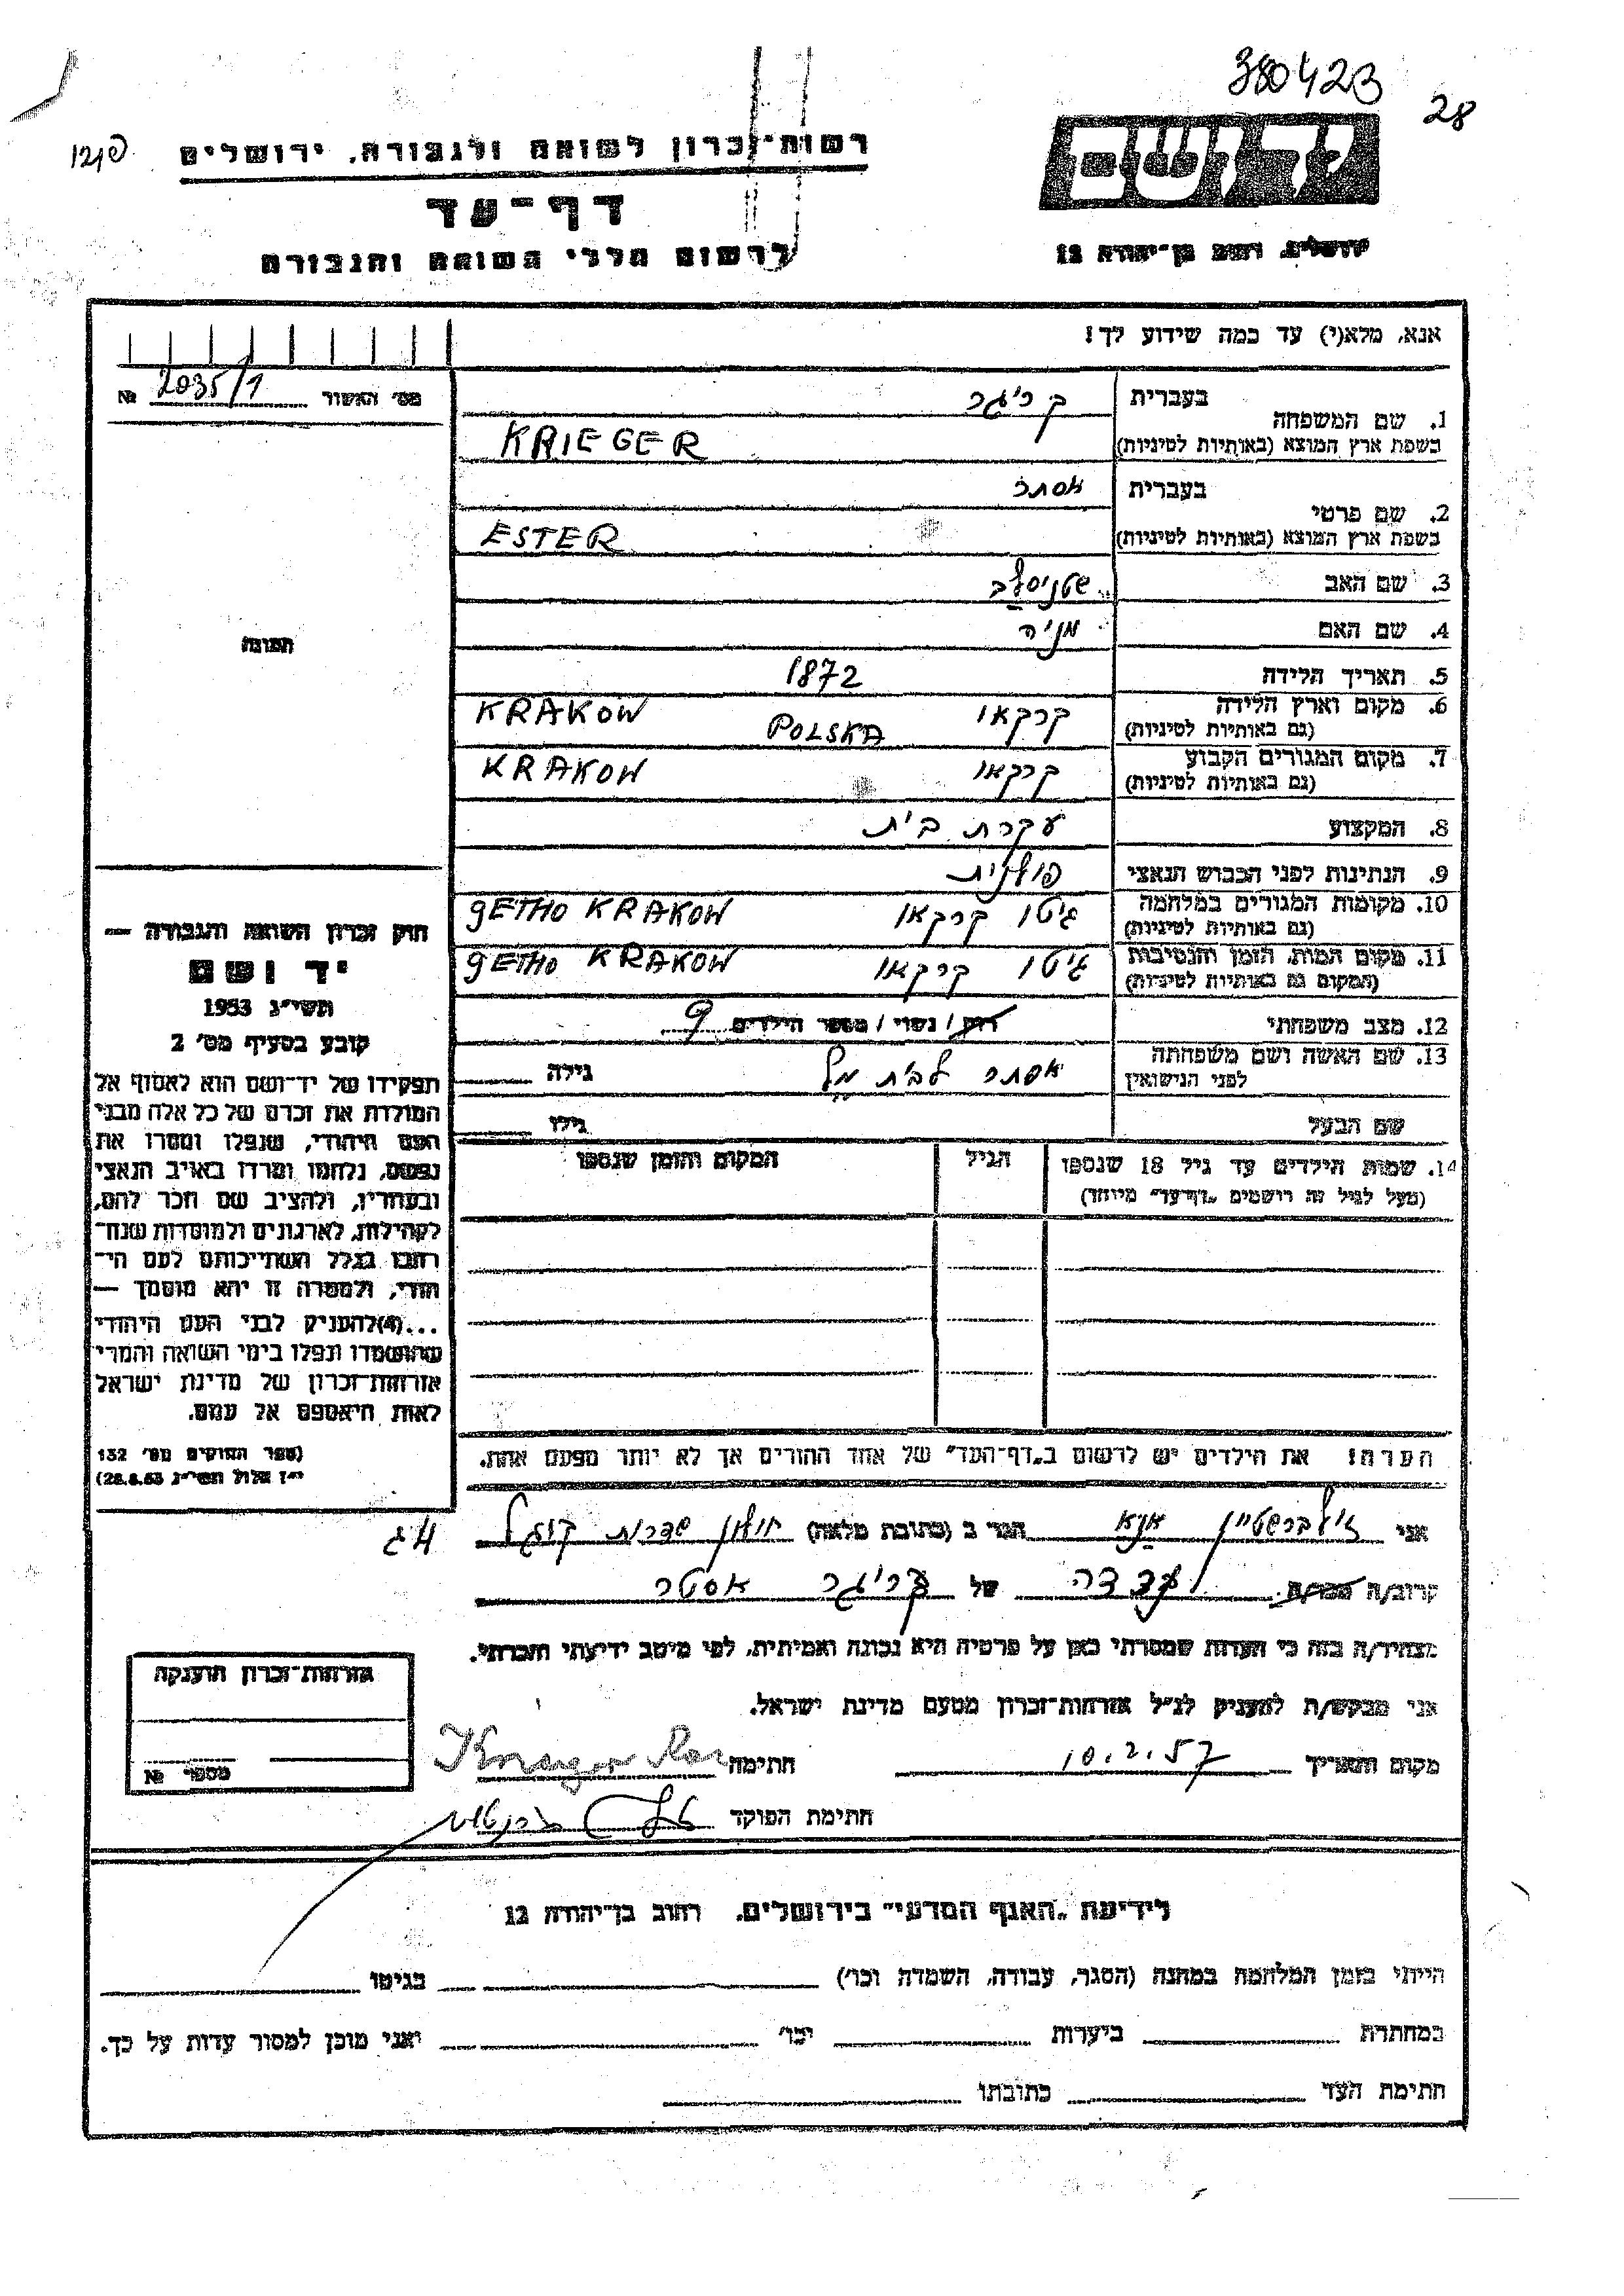 380423
28
יד ושם
ירושלים, רחוב בן-יהודה 12
רשות-זכרון לשואה ולגבורה, ירושלים
דף-עד
לרשום חללי השואה והגבורה
אנא, מלא(י) עד כמה שידוע לך!
מס' האשור 2035/1 №
1. שם המשפחה
בעברית קריגר
בשפת ארץ המוצא (באותיות לטיניות) KRIEGER
2. שם פרטי
בעברית אסתר
בשפת ארץ המוצא (באותיות לטיניות) ESTER
3. שם האב שטניסלב
4. שם האם מניה
5. תאריך הלידה 1872
6. מקום וארץ הלידה קרקאו KRAKOW
(גם באותיות לטיניות) POLSKA
7. מקום המגורים הקבוע קרקאו KRAKOW
(גם באותיות לטיניות)
8. המקצוע עקרת בית
9. הנתינות לפני הכבוש הנאצי פולנית
10. מקומות המגורים במלחמה גיטו קרקאו GETHO KRAKOW
(גם באותיות לטיניות)
11. מקום המות, הזמן והנסיבות גיטו קרקאו GETHO KRAKOW
(המקום גם באותיות לטיניות)
12. מצב משפחתי רווק / נשוי / מספר הילדים 9
13. שם האשה ושם משפחתה אסתר לבית גילה
לפני הנישואין
שם הבעל גילו
14. שמות הילדים עד גיל 18 שנספו הגיל המקום והזמן שנספו
(מעל לגיל זה רושמים "דף-עד" מיוחד)
הערה! את הילדים יש לרשום ב"דף-העד" של אחד ההורים אך לא יותר מפעם אחת.
תמונה
חוק זכרון השואה והגבורה —
יד ושם
תשי"ג 1953
קובע בסעיף מס' 2
תפקידו של יד-ושם הוא לאסוף אל
המולדת את זכרם של כל אלה מבני
העם היהודי, שנפלו ומסרו את
נפשם, נלחמו ומרדו באויב הנאצי
ובעוזריו, ולהציב שם וזכר להם,
לקהילות, לארגונים ולמוסדות שנח-
רבו בגלל השתייכותם לעם הי-
הודי, ולמטרה זו יהא מוסמך —
...(4)להעניק לבני העם היהודי
שהושמדו ונפלו בימי השואה והמרי
אזרחות-זכרון של מדינת ישראל
לאות היאספם אל עמם.
(ספר החוקים מס' 132
י"ז אלול תשי"ג 28.8.53)
אני זילברשטיין אנא הגר ב (כתובת מלאה) חולון שדרות קוגל 4ג
קרוב/ה מכר/ה נכדה של קריגר אסטר
מצהיר/ה בזה כי העדות שמסרתי כאן על פרטיה היא נכונה ואמיתית, לפי מיטב ידיעתי והכרתי.
אני מבקש/ת להעניק לנ"ל אזרחות-זכרון מטעם מדינת ישראל.
מקום ותאריך 10.2.57 חתימה
חתימת הפוקד
אזרחות-זכרון הוענקה
מספר №
לידיעת "האגף המדעי" בירושלים, רחוב בן-יהודה 12
הייתי בזמן המלחמה במחנה (הסגר, עבודה, השמדה וכו') בגיטו
במחתרת ביערות וכו' ואני מוכן למסור עדות על כך.
חתימת העד כתובתו